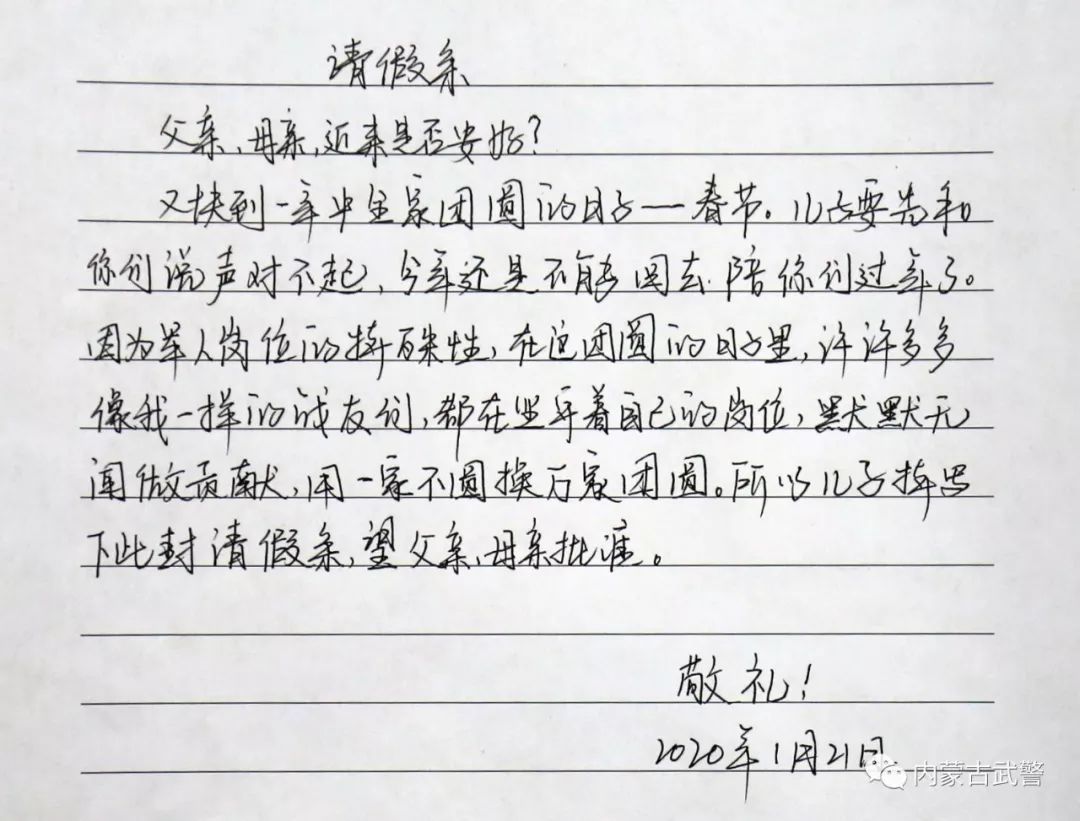 请假条
父亲、母亲,近来是否安好?
又快到一年中全家团圆的日子——春节。儿子要先和
你们说声对不起,今年还是不能回去陪你们过年了。
因为军人岗位的特殊性,在这团圆的日子里,许许多多
像我一样的战友们,都在坚守着自己的岗位,默默无
闻做贡献,用一家不圆换万家团圆。所以儿子特写
下此封请假条,望父亲、母亲批准。
敬礼!
2020年1月21日
内蒙古武警